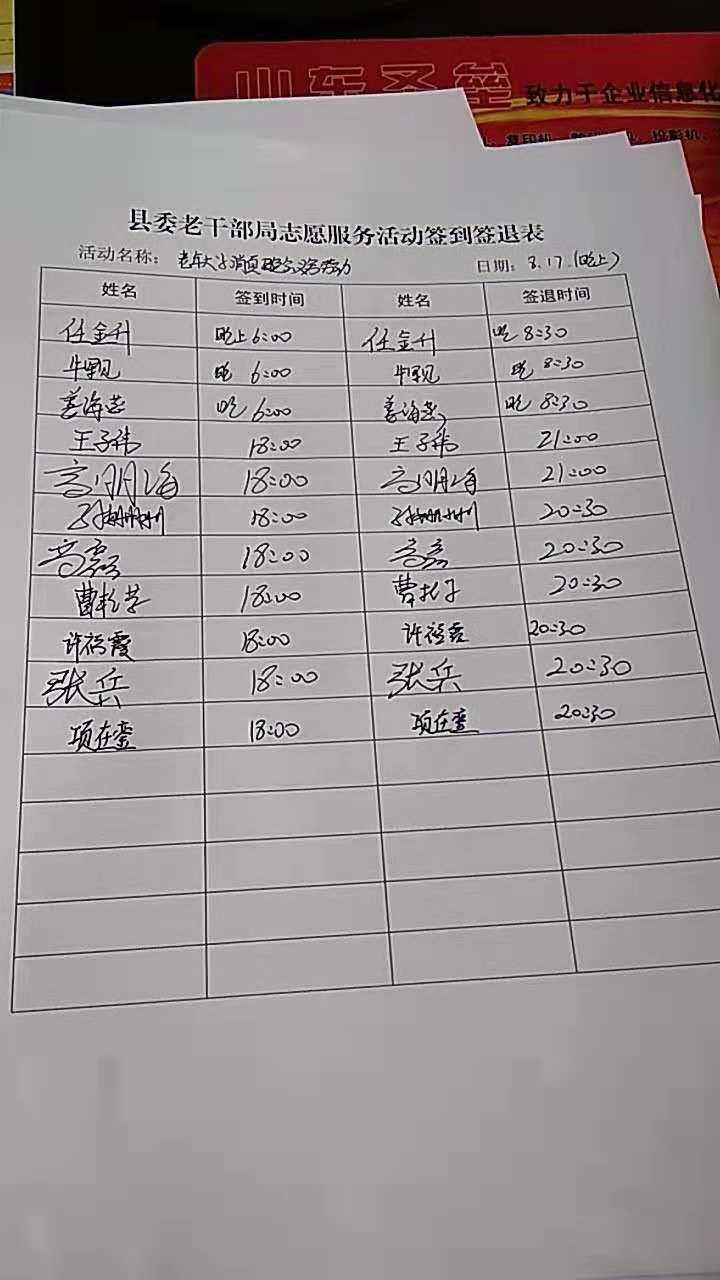 山东圣垒 致力于企业信息化
复印机 投影机
县委老干部局志愿服务活动签到签退表
活动名称: 老年大学消夏晚会活动 日期: 8.17.(晚上)
姓名 签到时间 姓名 签退时间
任金升 晚上6:00 任金升 晚8:30
牛觐 晚 6:00 牛觐 晚 8:30
姜海燕 晚6:00 姜海燕 晚 8:30
王子祎 18:00 王子祎 21:00
高明海 18:00 高明海 21:00
18:00 20:30
高磊 18:00 高磊 20:30
曹 18:00 曹 20:30
许福霞 18:00 许福霞 20:30
张兵 18:00 张兵 20:30
项在銮 18:00 项在銮 20:30